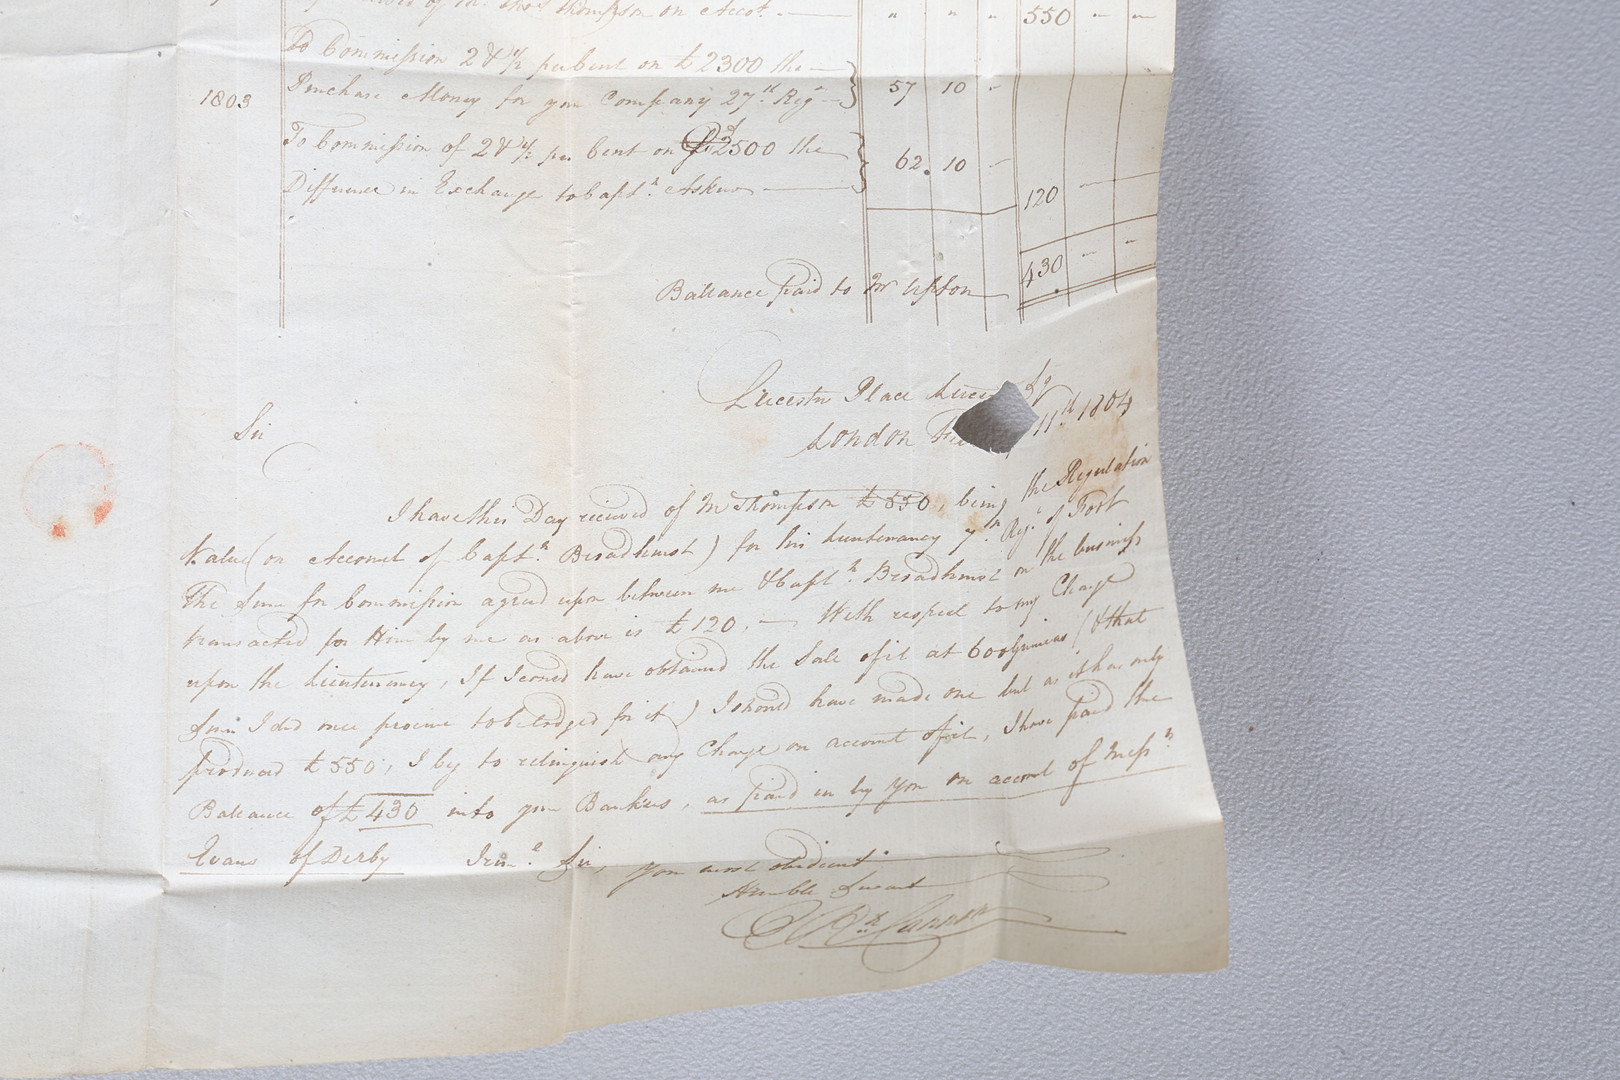 of Mr. Thos. Thompson on Acct. — " " " 550 " "
To Commission 2 & ½ per Cent on £2300 the —
1803 Purchase Money for your Company 27th Regt — 57 10 -
To Commission of 2 & ½ per Cent on £2500 the — 62. 10 -
Difference in Exchange to Captn. Askew — 120 - -
430 " "
Ballance paid to Mr Upton
Leicester Place Leices Sq
London 11th 1804
Sir
I have this Day received of Mr Thompson £550, being the Regulation
Value (on Account of Captn. Broadhurst) for his Lieutenancy 7th Regt. of Foot
The Sum for Commission agreed upon between me & Captn. Broadhurst on the business
transacted for Him by me as above is £120, — With respect to my Charge
upon the Lieutenancy, If I could have obtained the Sale of it at 600 Guineas (& that
Sum I did once procure to be lodged for it) I should have made one but as it has only
produced £550, I beg to relinquish any Charge on account of it, I have paid the
Ballance of £430 into your Bankers, as paid in by you on account of Messrs
Evans of Derby Sir, your most obedient
Humble Servant